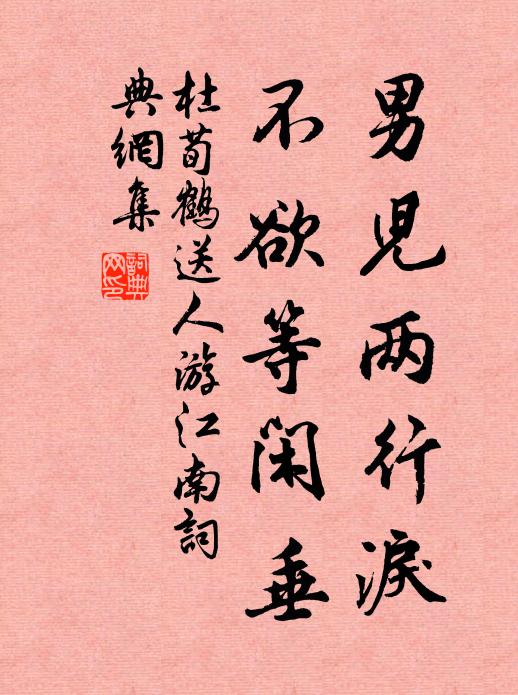 男児两行淚
不欲等閑垂
杜荀鶴送人游江南詞
典網集
詞典
网印